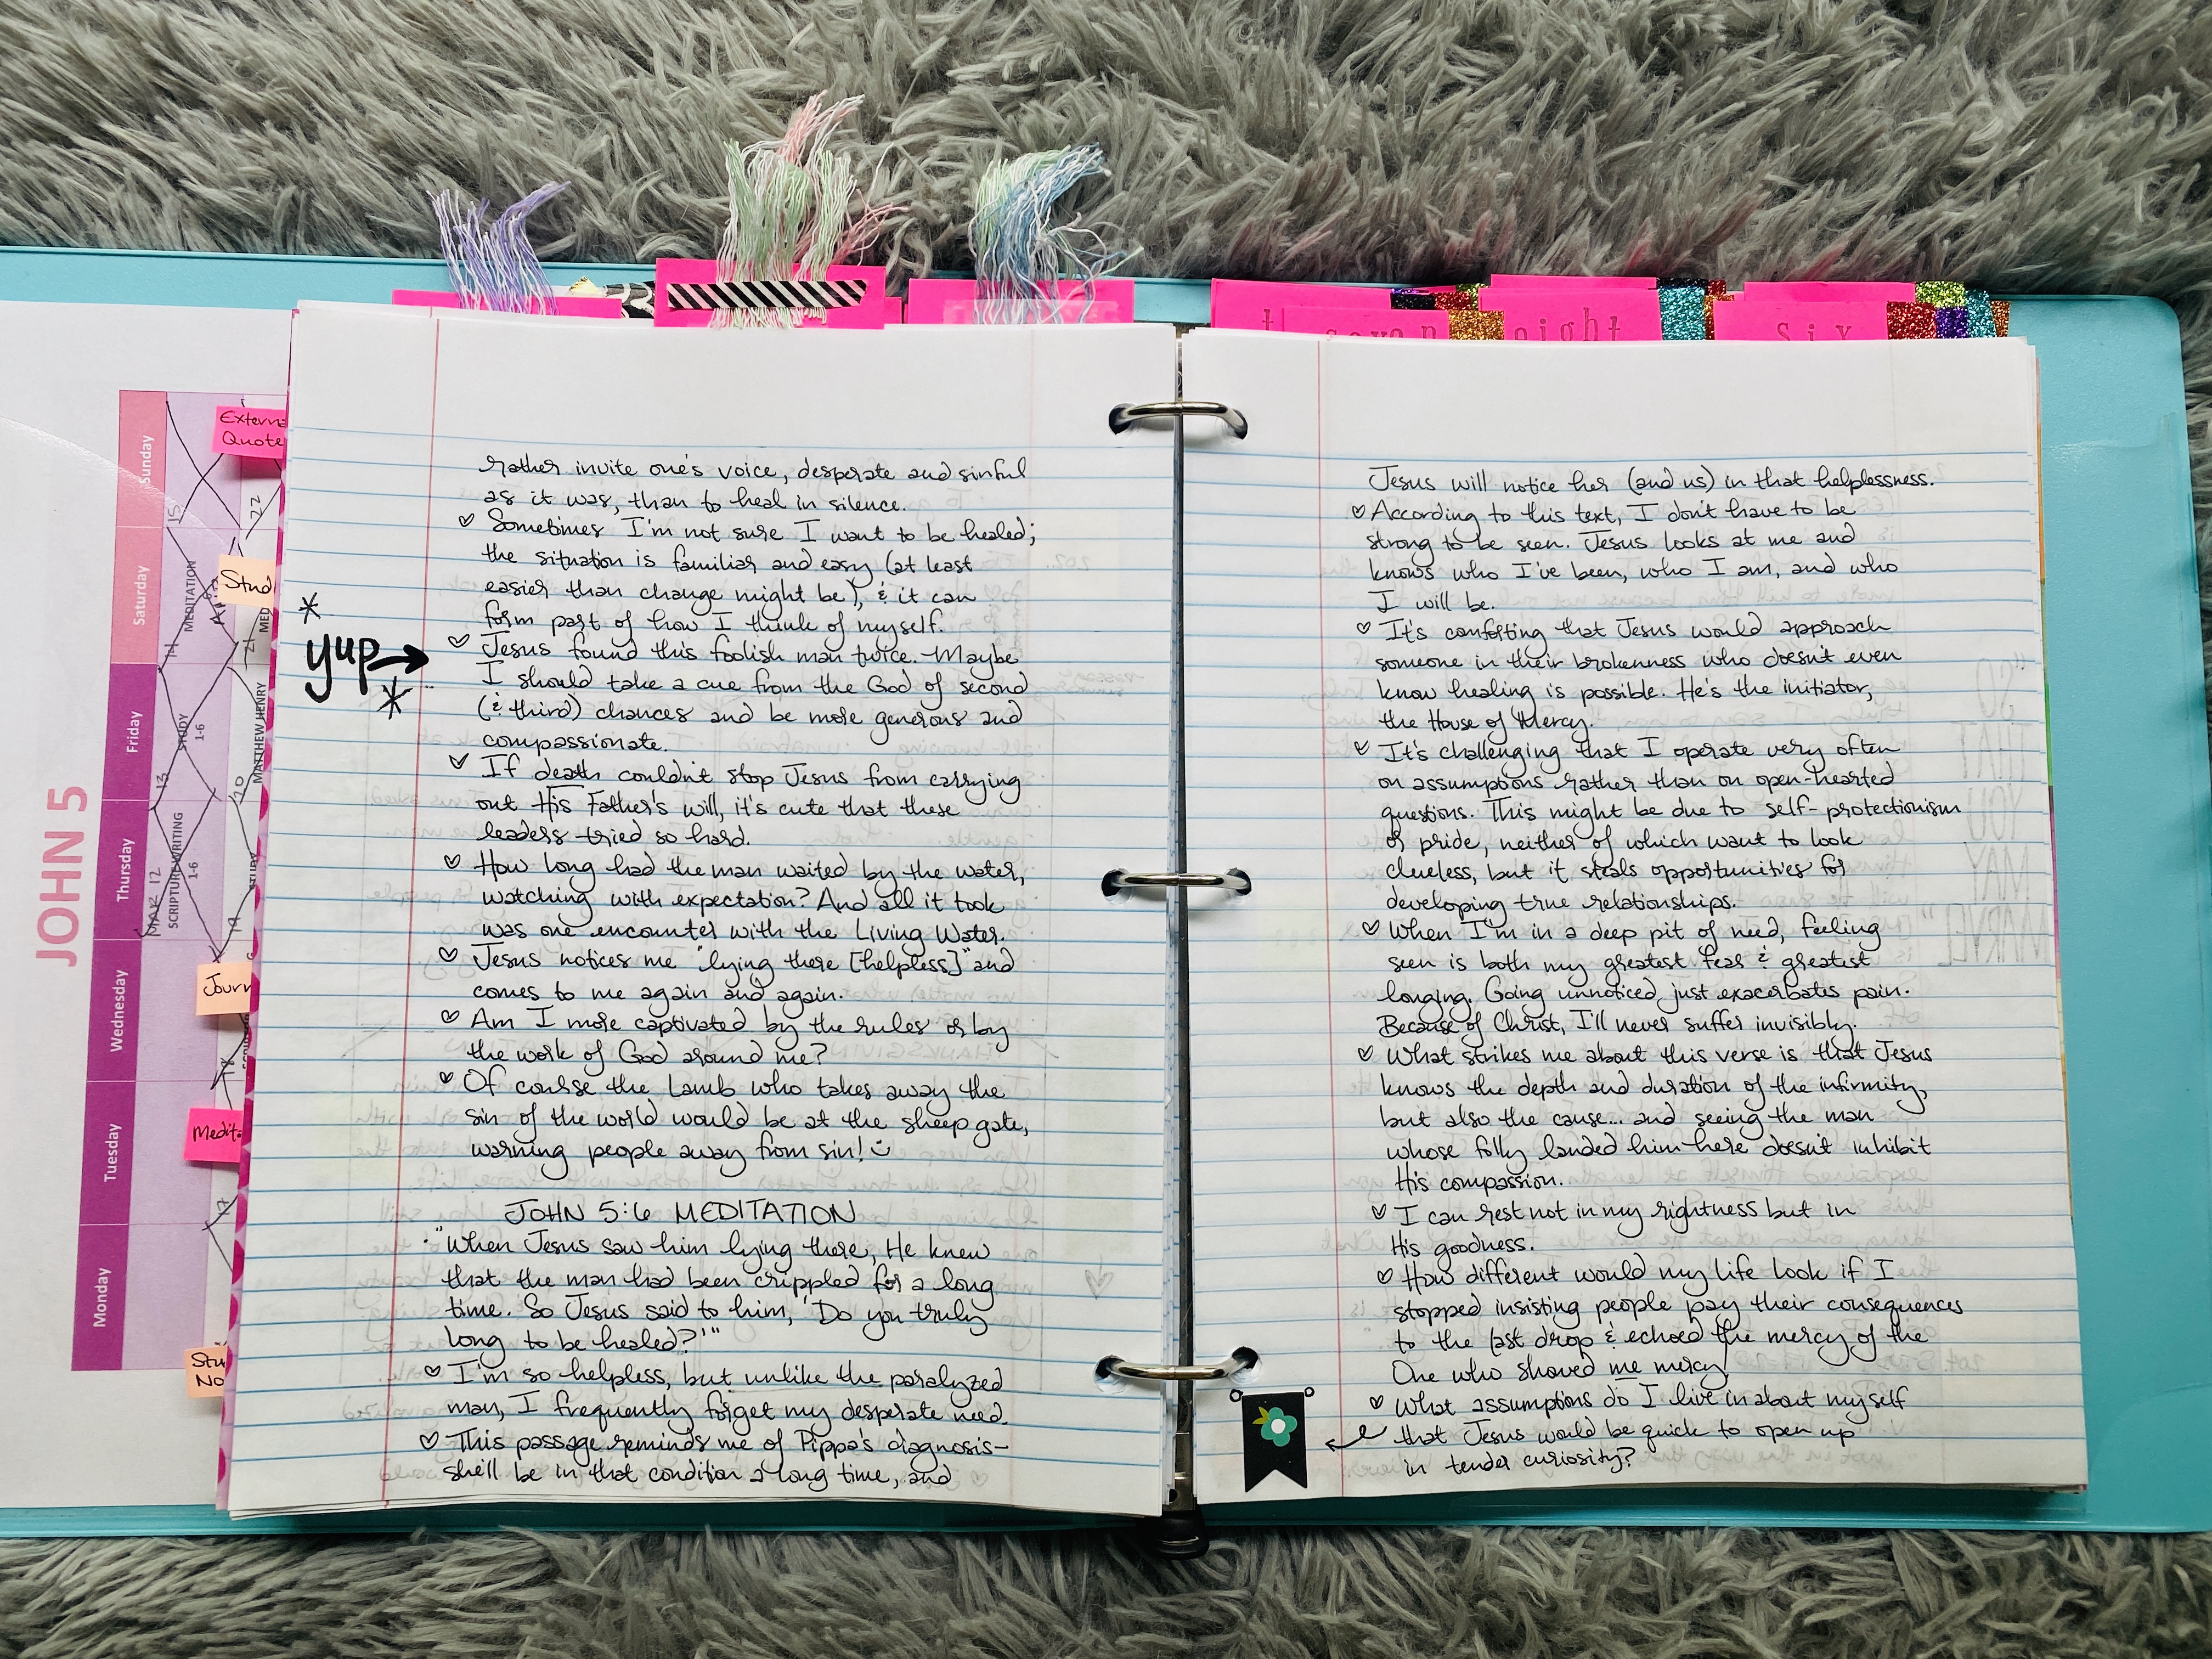 JOHN 5
Sunday
Saturday
Friday
Thursday
Wednesday
Tuesday
Monday
15
22
MEDITATION
14
21
STUDY
1-6
13
20
MATTHEW HENRY
MAR 12
SCRIPTURE WRITING
1-6
19
18
17
Quote
Stud
Journ
Medita
Stu
No
seven
eight
six
*
yup→
*
rather invite one's voice, desperate and sinful
as it was, than to heal in silence.
♡ Sometimes I'm not sure I want to be healed;
the situation is familiar and easy (at least
easier than change might be), & it can
form part of how I think of myself.
♡ Jesus found this foolish man twice. Maybe
I should take a cue from the God of second
(& third) chances and be more generous and
compassionate.
♡ If death couldn't stop Jesus from carrying
out His Father's will, it's cute that these
leaders tried so hard.
♡ How long had the man waited by the water,
watching with expectation? And all it took
was one encounter with the Living Water.
♡ Jesus notices me "lying there [helpless]" and
comes to me again and again.
♡ Am I more captivated by the rules or by
the work of God around me?
♡ Of course the Lamb who takes away the
sin of the world would be at the sheep gate,
warning people away from sin! :)
JOHN 5:6 MEDITATION
"When Jesus saw him lying there, He knew
that the man had been crippled for a long
time. So Jesus said to him, 'Do you truly
long to be healed?'"
♡ I'm so helpless, but unlike the paralyzed
man, I frequently forget my desperate need.
♡ This passage reminds me of Pippa's diagnosis-
she'll be in that condition a long time, and
Jesus will notice her (and us) in that helplessness.
♡ According to this text, I don't have to be
strong to be seen. Jesus looks at me and
knows who I've been, who I am, and who
I will be.
♡ It's comforting that Jesus would approach
someone in their brokenness who doesn't even
know healing is possible. He's the initiator,
the House of Mercy.
♡ It's challenging that I operate very often
on assumptions rather than on open-hearted
questions. This might be due to self-protectionism
or pride, neither of which want to look
clueless, but it steals opportunities for
developing true relationships.
♡ When I'm in a deep pit of need, feeling
seen is both my greatest fear & greatest
longing. Going unnoticed just exacerbates pain.
Because of Christ, I'll never suffer invisibly.
♡ What strikes me about this verse is that Jesus
knows the depth and duration of the infirmity,
but also the cause... and seeing the man
whose folly landed him here doesn't inhibit
His compassion.
♡ I can rest not in my rightness but in
His goodness.
♡ How different would my life look if I
stopped insisting people pay their consequences
to the last drop & echoed the mercy of the
One who showed me mercy!
♡ What assumptions do I live in about myself
that Jesus would be quick to open up
in tender curiosity?